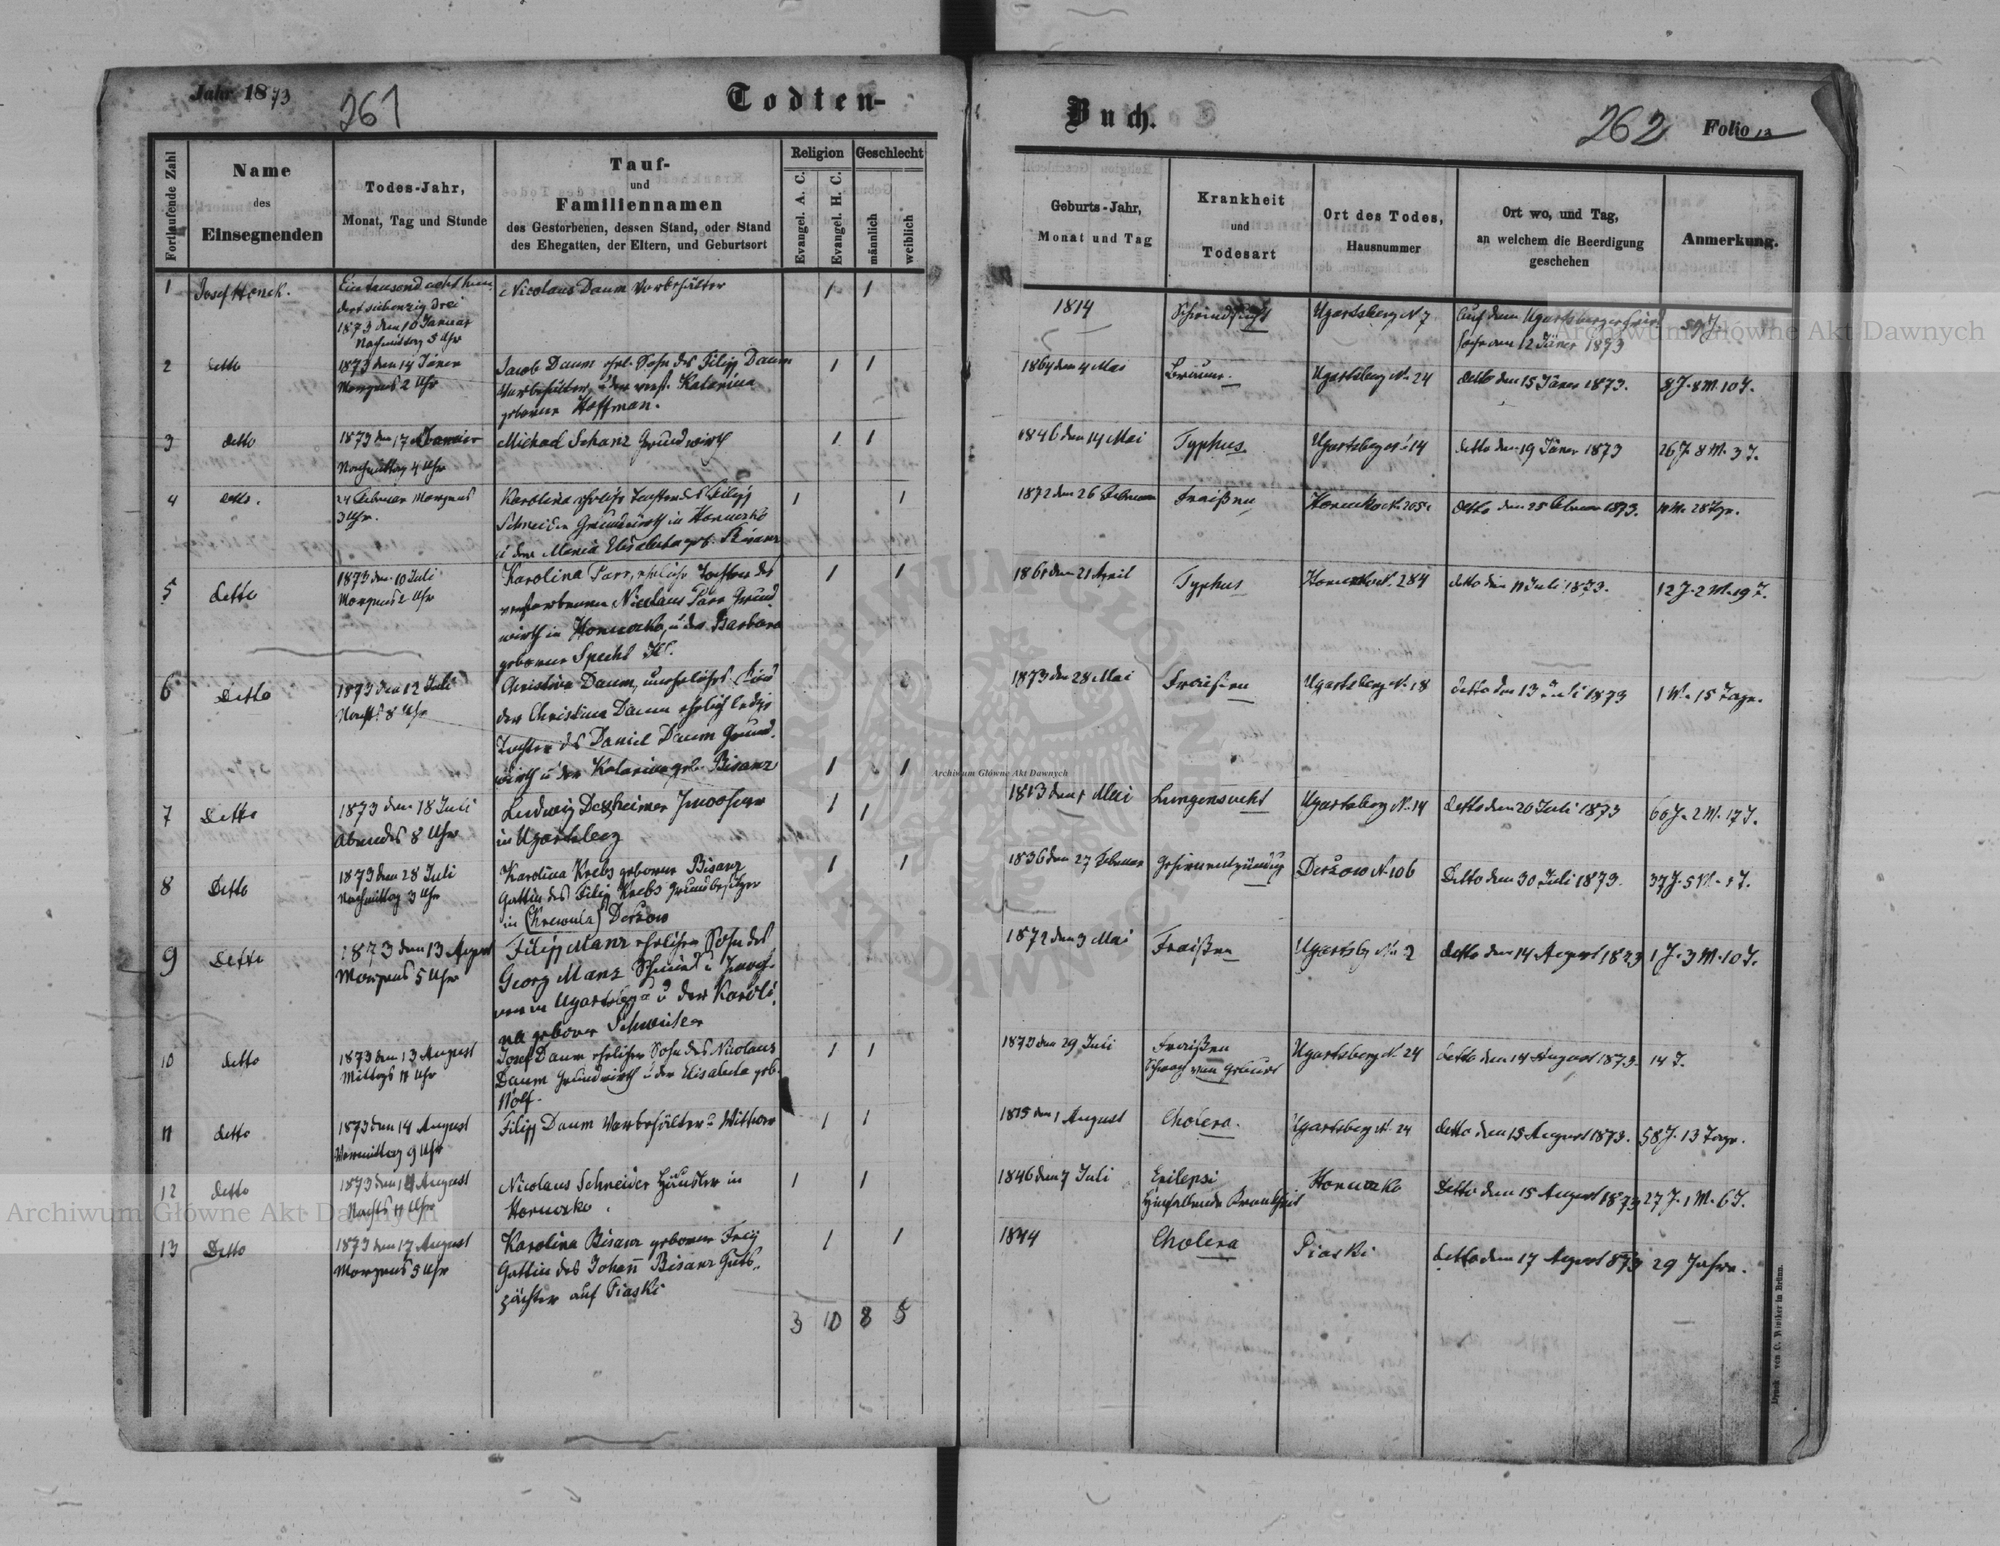 Jahr 1873
261
Todten-
Buch.
262
Folio 13
Fortlaufende Zahl
Name
des
Einsegnenden
Todes-Jahr,
Monat, Tag und Stunde
Tauf-
und
Familiennamen
des Gestorbenen, dessen Stand, oder Stand
des Ehegatten, der Eltern, und Geburtsort
Religion
Geschlecht
Evangel. A. C.
Evangel. H. C.
männlich
weiblich
Geburts-Jahr,
Monat und Tag
Krankheit
und
Todesart
Ort des Todes,
Hausnummer
Ort wo, und Tag,
an welchem die Beerdigung
geschehen
Anmerkung.
1
Josef Honek.
Eintausend acht hun
dert siebenzig drei
1873 den 10 Januar
Nachmittag 5 Uhr
Nicolaus Daum Vorbehälter
1 1
1814
Schwindsucht
Ugartsberg N 7
Auf dem Ugartsberger
den 12 Jäner 1873
59 J.
2
detto
1873 den 14 Jäner
Morgens 2 Uhr
Jacob Daum ehel. Sohn des Filipp Daum
Vorbehälter, u der Katarina
geborene Hoffman.
1 1
1864 den 4 Mai
Bräune.
Ugartsberg N. 24
detto den 15 Jäner 1873.
8 J. 8 M. 10 T.
3
detto
1873 den 17 Januar
Nachmittag 4 Uhr
Michael Schanz Grundwirth
1 1
1846 den 14 Mai
Typhus
Ugartsberg N. 14
detto den 19 Jäner 1873
26 J. 8 M. 3 T.
4
detto.
24 Februar Morgens
3 Uhr.
Karolina eheliche Tochter des Filipp
Schneider Grundwirth in Hornosko
u der Maria Elisabeta geb. Bisanz
1 1
1872 den 26 Februar
Fraißen
205
detto den 25 Februar 1873.
28 Tage.
5
detto
1873 den 10 Juli
Morgens 2 Uhr
Karolina Parr, eheliche Tochter des
verstorbenen Nicolaus Parr Grund
wirth in u der Barbara
geborene Specht
1 1
1861 den 21 April
Typhus
284
detto den 11 Juli 1873.
12 J. 2 M. 19 T.
6
Detto
1873 den 12 Juli
8 Uhr
Christina Daum, uneheliches Kind
der Christina Daum ehelich ledige
Tochter des Daniel Daum Grund
wirth u der Katarina geb. Bisanz
1 1
1873 den 28 Mai
Fraisen
Ugartsberg N. 18
detto den 13 Juli 1873
1 M. 15 Tage.
7
Detto
1873 den 18 Juli
Abends 8 Uhr
Ludwig Dexheimer Inwohner
in Ugartsberg
1 1
1813 den 1 Mai
Lungensucht
Ugartsberg N. 14
detto den 20 Juli 1873
60 J. 2 M. 17 T.
8
Detto
1873 den 28 Juli
Nachmittag 3 Uhr
Karolina Krebs geborene Bisanz
Gattin des Filip Krebs Grundbesitzer
in Derzow
1 1
1836 den 27 Februar
Gehirnentzündug
Derzow N. 106
Detto den 30 Juli 1873.
37 J. 5 M. 1 T.
9
Detto
1873 den 13 August
Morgens 5 Uhr
Filipp Manz ehelicher Sohn des
Georg Manz Schmied u Inwoh-
ner in Ugartsberg u der Karoli
na geborene Schweitzer
1872 den 3 Mai
Fraißen
Ugartsbg N. 2
detto den 14 August 1873
1 J. 3 M. 10 T.
10
detto
1873 den 13 August
Mittags 11 Uhr
Josef Daum ehelicher Sohn des Nicolaus
Daum Grundwirth u der Elisabeta geb
Wolf.
1 1
1873 den 29 Juli
Fraißen
Schwach von Geburt
Ugartsberg N. 24
detto den 14 August 1873
14 T.
11
detto
1873 den 14 August
Vormittag 9 Uhr
Filipp Daum Vorbehälter u Wittwer
1 1
1815 den 1 August
Cholera.
Ugartsberg N. 24
detto den 15 August 1873.
58 J. 13 Tage.
12
detto
1873 den 14 August
Nachts 11 Uhr
Nicolaus Schneider Häusler in
1 1
1846 den 7 Juli
Epilepsi
Hinfallende Krankheit
Detto den 15 August 1873
27 J. 1 M. 6 T.
13
Detto
1873 den 17 August
Morgens 5 Uhr
Karolina Bisanz geborene Frey
Gattin des Johann Bisanz Guts-
pächter auf Piaski
1 1
1844
Cholera
Piaski
detto den 17 August 1873
29 Jahre.
3 10 8 5
Druck von C. Winiker in Brünn.
Archiwum Główne Akt Dawnych
Archiwum Główne Akt Dawnych
Archiwum Główne Akt Dawnych
ARCHIWUM GŁÓWNE AKT DAWNYCH